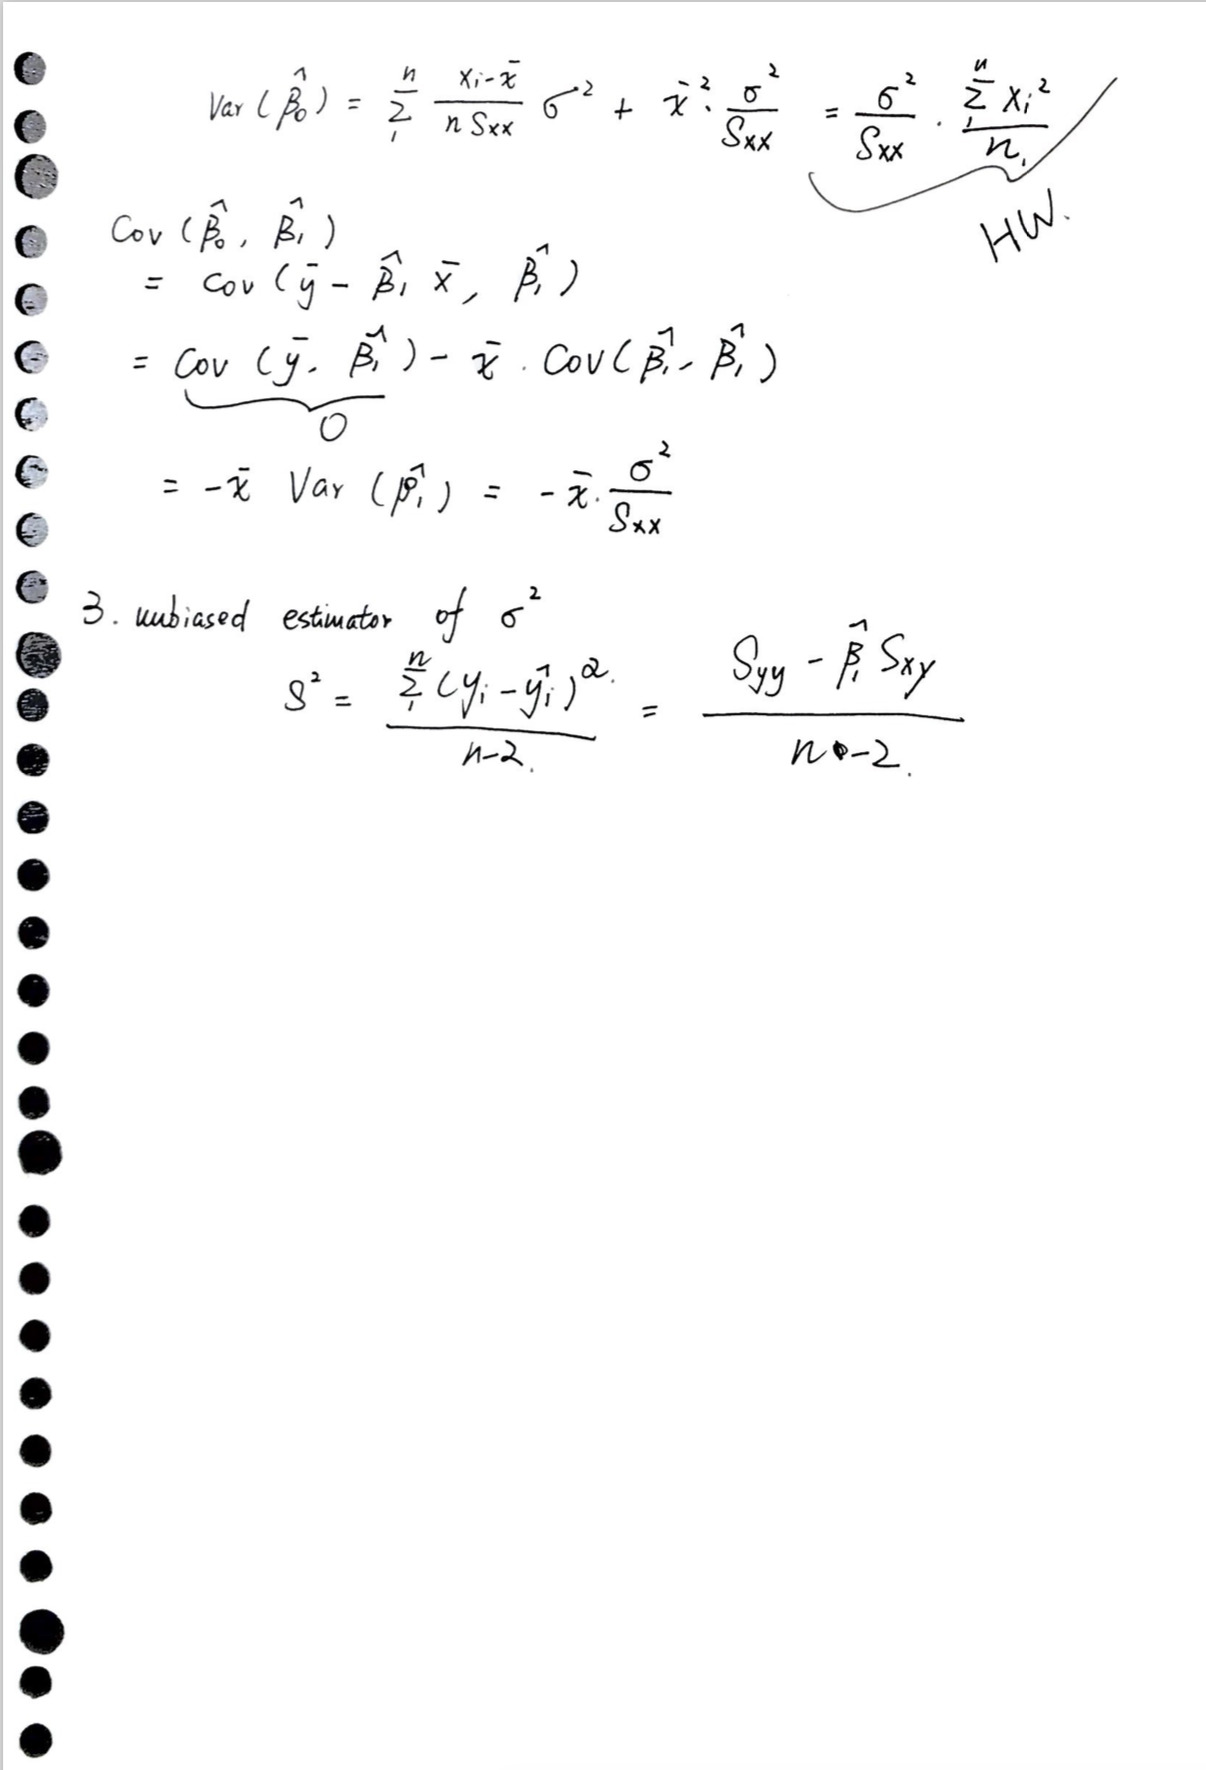 Var(β̂₀) = Σ₁ⁿ (xᵢ-x̄)/(n Sxx) σ² + x̄²·σ²/Sxx = σ²/Sxx · Σ₁ⁿ xᵢ²/n.
HW.
Cov(β̂₀, β̂₁)
= Cov(ȳ - β̂₁ x̄, β̂₁)
= Cov(ȳ, β̂₁) - x̄ · Cov(β̂₁, β̂₁)
0
= -x̄ Var(β̂₁) = -x̄·σ²/Sxx
3. unbiased estimator of σ²
S² = Σ₁ⁿ(yᵢ-ŷᵢ)²/(n-2) = (Syy - β̂₁ Sxy)/(n-2)